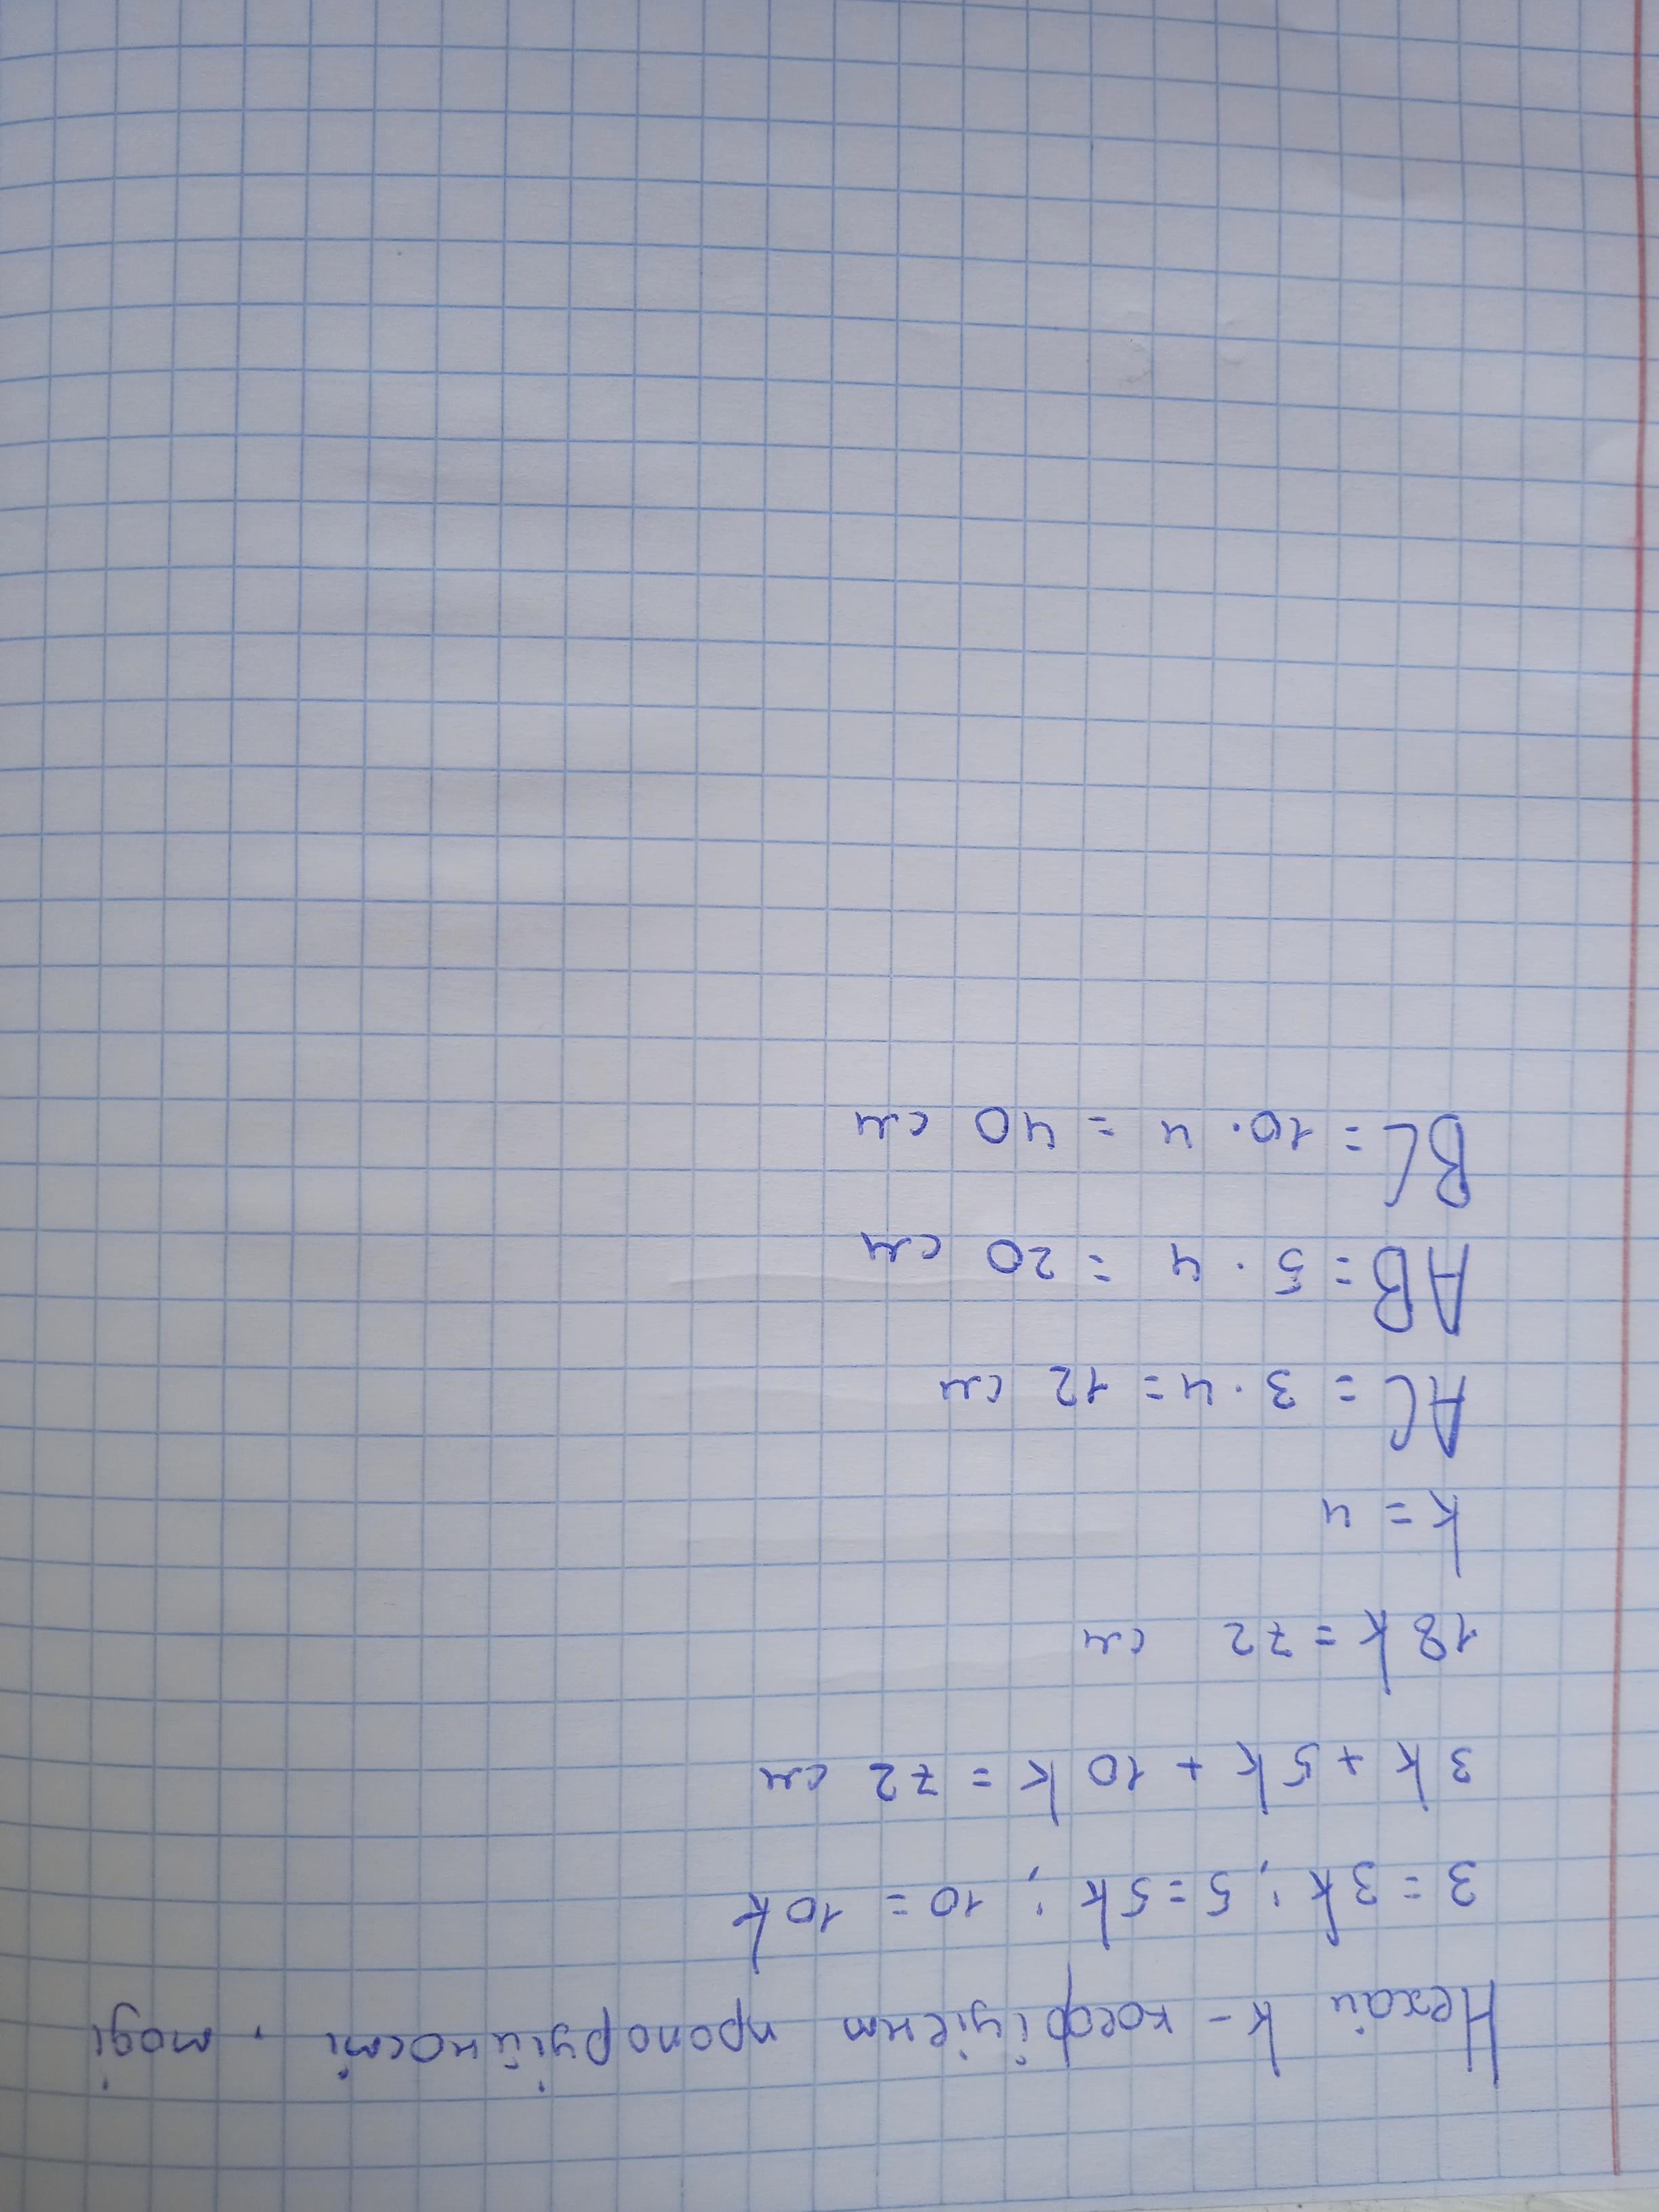 Нехай k - коефіцієнт пропорційності, тоді
3 = 3k; 5 = 5k; 10 = 10k
3k + 5k + 10k = 72 см
18k = 72 см
k = 4
AC = 3 · 4 = 12 см
AB = 5 · 4 = 20 см
BC = 10 · 4 = 40 см